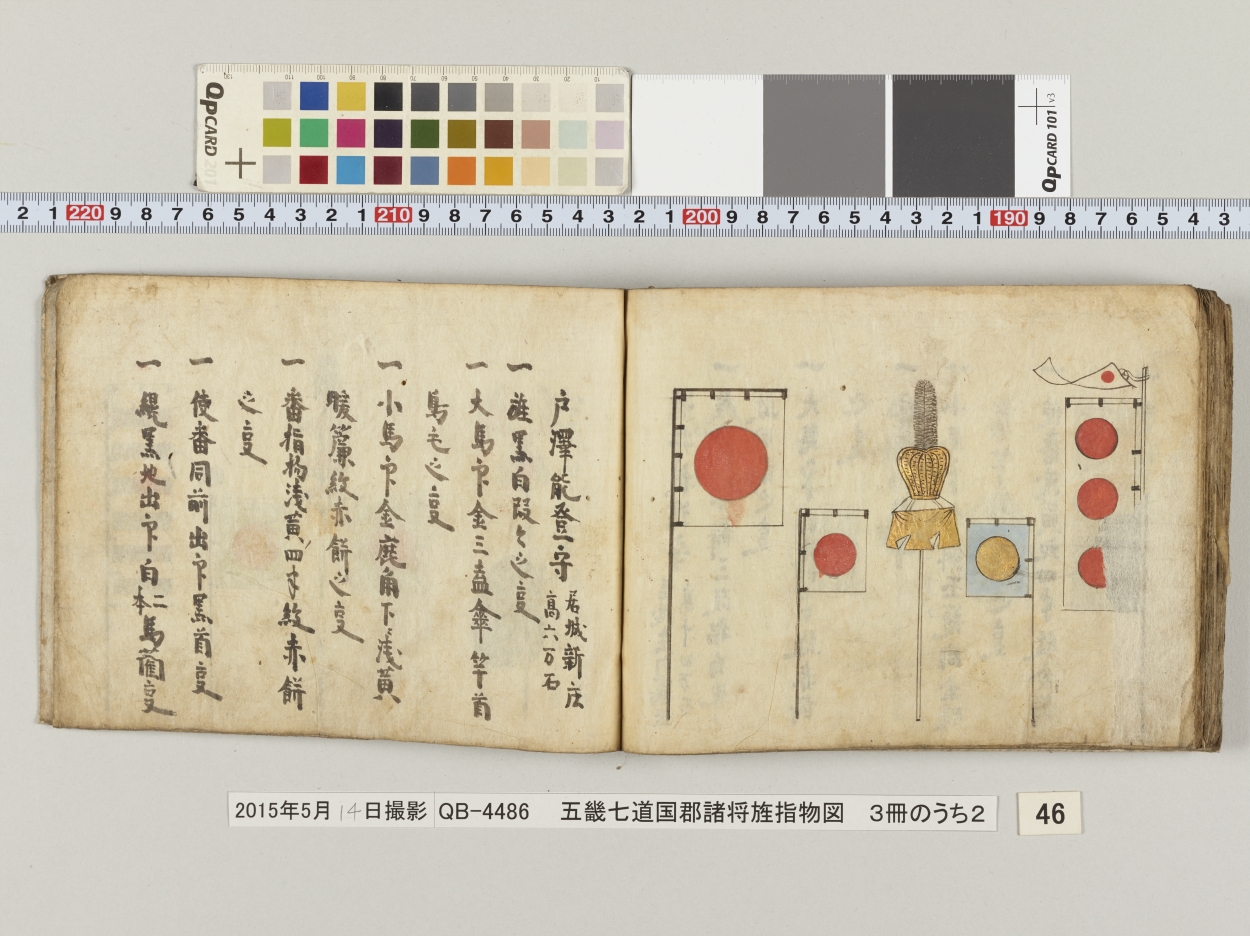 QPCARD 201
QPCARD 101 v3
2 1 220 9 8 7 6 5 4 3 2 1 210 9 8 7 6 5 4 3 2 1 200 9 8 7 6 5 4 3 2 1 190 9 8 7 6 5 4 3
戸澤能登守 居城新庄 高六万石
一 旌黒白段々之事
一 大馬印金三蓋傘竿首
鳥毛之事
一 小馬印金庭角下浅黄
暖簾紋赤餅之事
一 番指物浅黄四半紋赤餅
之事
一 使番同前出印黒首事
一 縨黒地出印白二本馬藺事
2015年5月14日撮影 QB-4486 五畿七道国郡諸将旌指物図 3冊のうち2
46